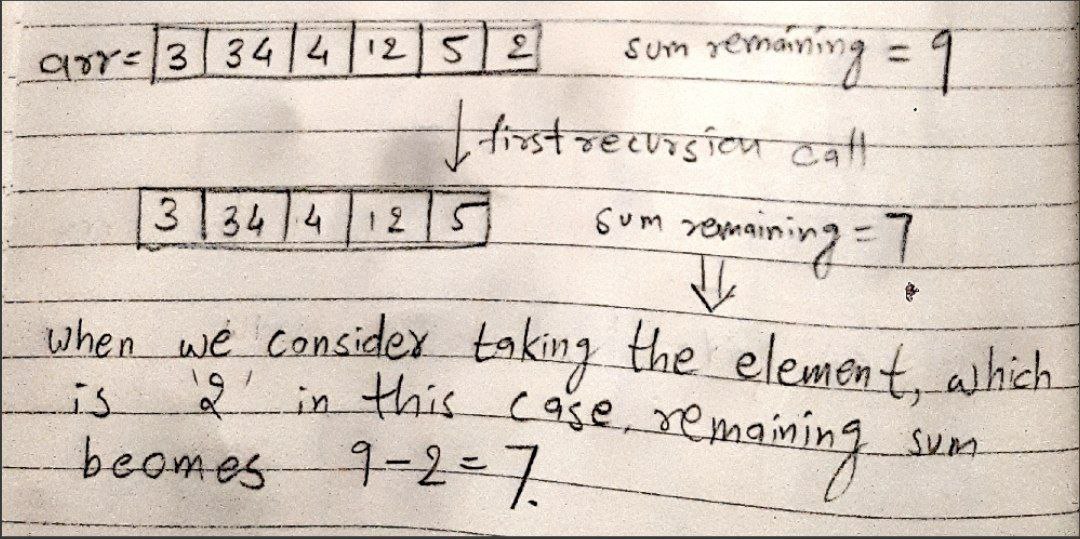 arr= 3 34 4 12 5 2 sum remaining = 9
first recursion call
3 34 4 12 5 sum remaining = 7
when we consider taking the element, which
is '2' in this case, remaining sum
beomes 9-2=7.